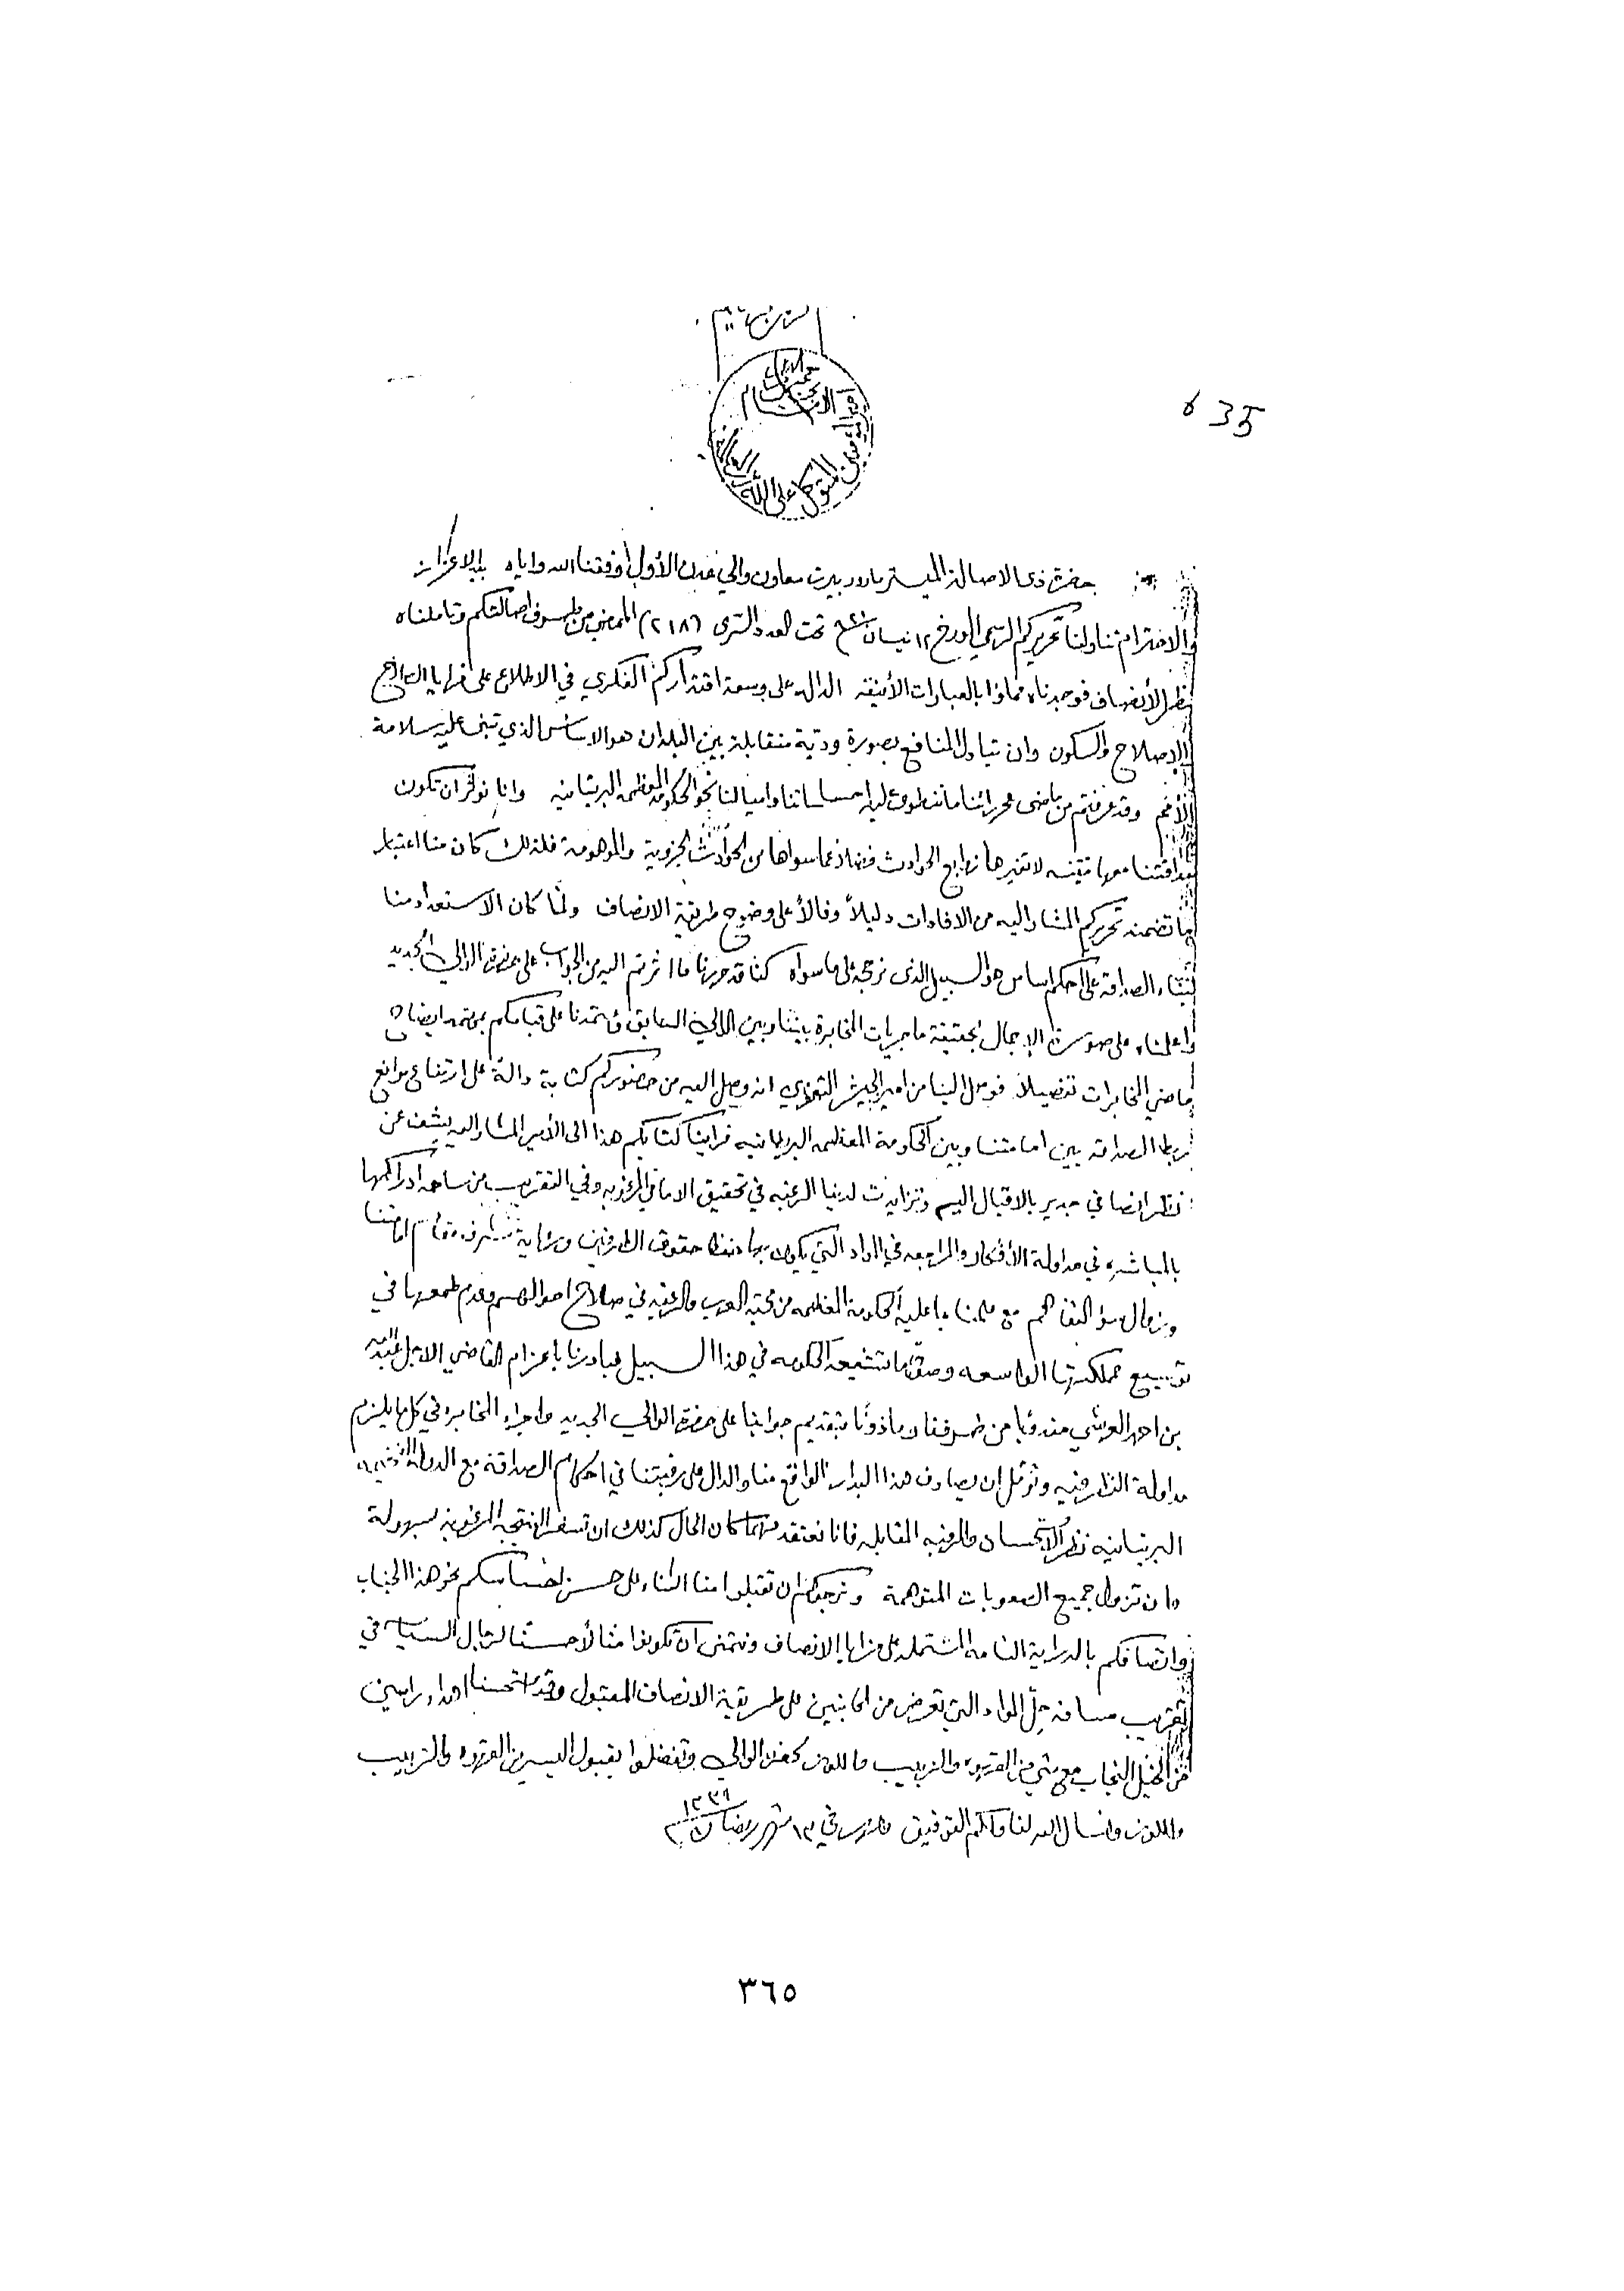 635
الامام
المتوكل على الله
حضرة ذي الاصالة المستر معاون والي عدن الأول وفقنا الله واياه بالاعزاز
والاحترام تناولنا تحريركم الرسمي المورخ ١٢ نيسان تحت العدد السري (٢١٨) الممضي من طرف اصالتكم وتاملناه
بنظر الأنصاف فوجدناه مملوءا بالعبارات الأنيقه الداله على وسعة اقتداركم الفكري في الاطلاع على مزايا
الإصلاح والسكون وان تبادل المنافع بصورة ودية متقابلة بين البلدان هو الاساس الذي تبنى عليه سلامة
الأمم وقد عرفتم من ماضي محرراتنا ما تنطوي عليه احساساتنا واميالنا نحو الحكومة المعظمه البريتانيه وانا نوثر ان تكون
صداقتنا معها متينه لا تغيرها زوابع الحوادث فضلا عما سواها من الحوادث الجزوية والموهومة فلذلك كان منا اعتبار
ما تضمنه تحريركم المشار اليه من الافادات دليلاً وفالاً على وضوح طريقة الانصاف ولما كان الاستعداد منا
لبناء الصداقه على احكم اساس هو السبيل الذي نرجحه على ما سواه كنا قد حررنا ما اشرتم اليه من الجواب على حضرة الوالي الجديد
واعلمناه على صورة الإجمال بحقيقة ماجريات المخابرة بيننا وبين الوالي السابق واعتمدنا على قيامكم بمهمة ايضاح
ماضي المخابرات تفصيلاً فوصل الينا من امير الجيش التعزي انه وصل اليه من حضوركم كتابة دالة على ارتفاع موانع
ربط الصداقه بين امامتنا وبين الحكومة المعظمه البريطانيه فراينا كتابكم هذا الى الأمير المشار اليه يشف عن
نظر انصافي جدير بالاقبال اليه وتزايدت لدينا الرغبه في تحقيق الاماني المرغوبه وفي التقريب من ساحه ادراكها
بالمباشره في مداولة الأفكار والمراجعه في المواد التي يكون بها حفظ حقوق الطرفين ورعاية شرف مقام امامتنا
وزوال سؤ التفاهم مع علمنا بما عليه الحكومة المعظمه من محبة العرب والرغبه في صلاح احوالهم وعدم طمعها في
توسيع مملكتها الواسعه وصدق ما تنتهجه الحكومه في هذا السبيل فبادرنا باعزام القاضي الاجل عبدالله
بن احمد العرشي مندوبا من طرفنا ماذونًا بتقديم جوابنا على حضرة الوالي الجديد واجراء المخابره في كل ما يلزم
مداولة النظر فيه ونؤمل ان يصادف هذا البدار الواقع منا والدال على رغبتنا في احكام الصداقة مع الدولة الفخيمه
البريتانيه نظر الاستحسان والرغبه المقابله فانا نعتقد مهما كان الحال كذلك ان تسفر النتيجه المرغوبة بسهولة
وان تزول جميع الصعوبات المتوهمة ونرجوكم ان تقبلوا منا الثناء على حسن احساسكم نحو هذا الجناب
واتصافكم بالدراية التامه المشتمله على مزايا الانصاف ونتمنى ان تكونوا مثالاً حسنًا لرجال السياسه في
تقريب مسافة حل المواد التي تعرض من الجانبين على طريقة الانصاف المقبول وقد استحسنا اهداء راسين
من الخيل النجاب مع شي من القهوه والزبيب واللوز لحضرة الوالي وتفضلوا بقبول اليسير من القهوه والزبيب
واللوز ونسال الله لنا ولكم التوفيق وحرر في ١٣ شهر رمضان ١٣٣٩
٣٦٥